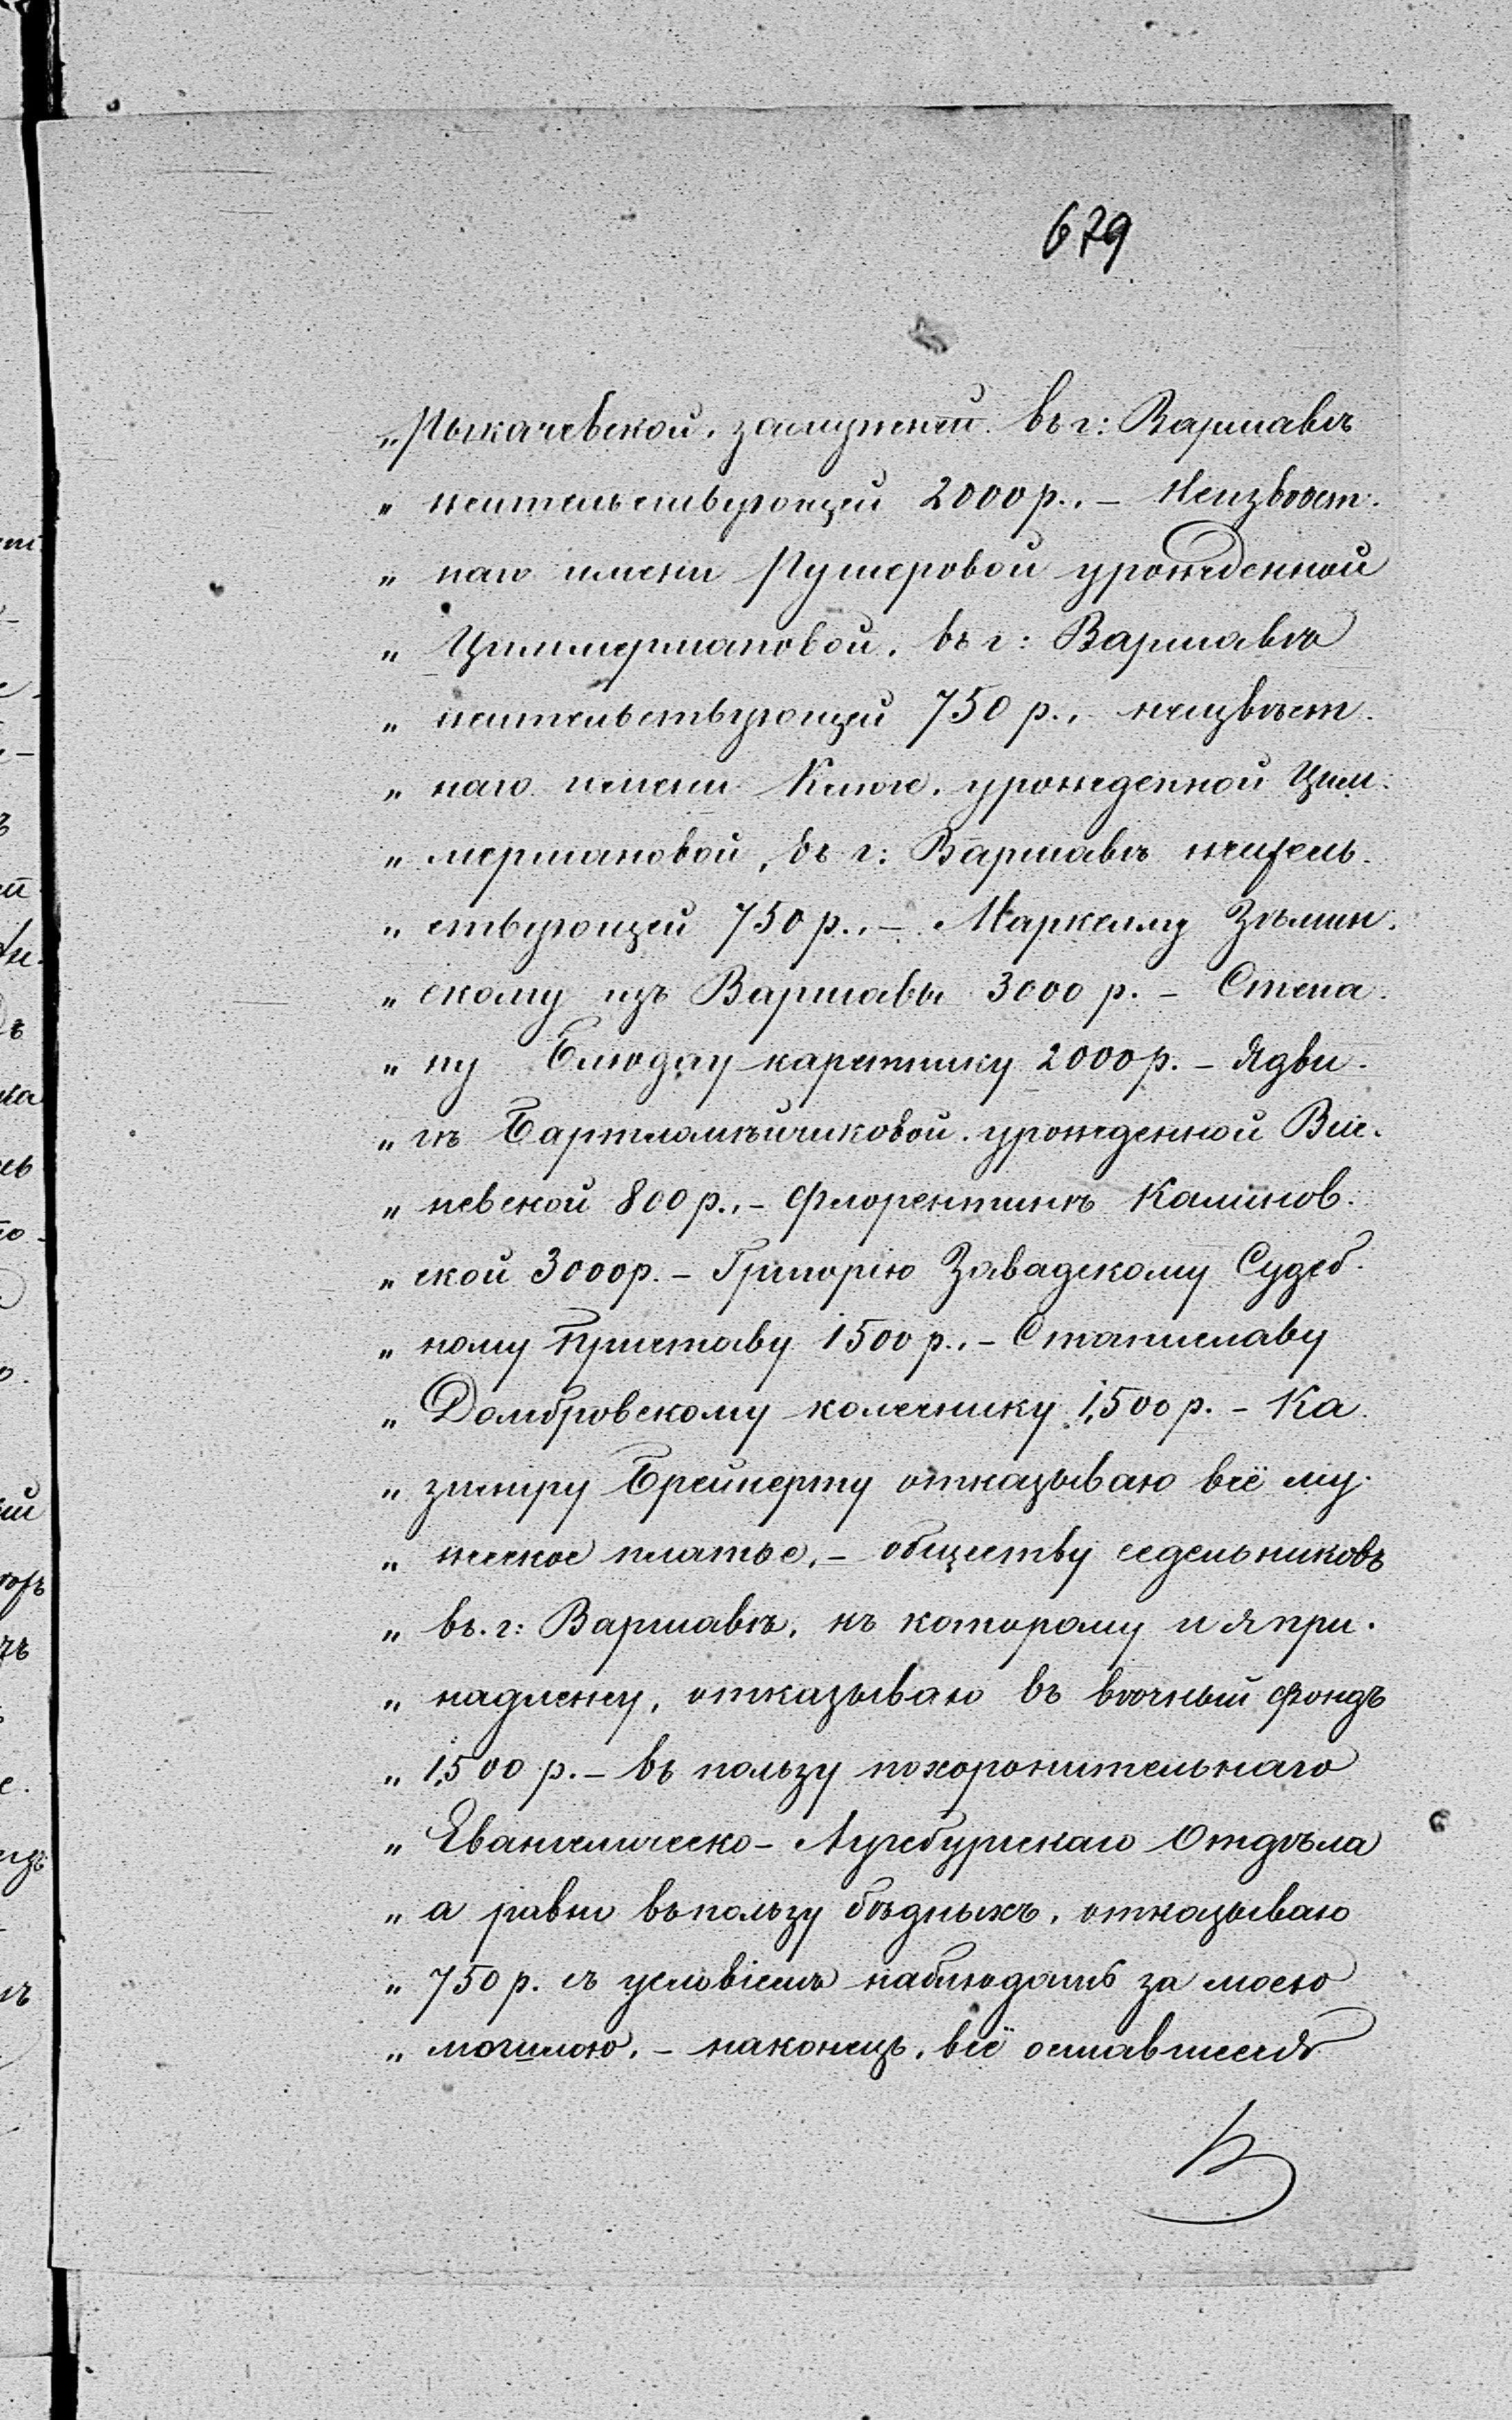 679
„Рыкачевской, замужней въ г: Варшавѣ
„ жительствующей 2000 р., – Неизвѣст.
„ наго имени Пушеровой урожденной
„ Циммермановой, въ г: Варшавѣ
„ жительствующей 750 р., неизвѣст.
„ наго имени Клюге, урожденной Цим:
„ мермановой, въ г: Варшавѣ житель.
„ ствующей 750 р., – Маркеллу Зѣлин.
„ скому изъ Варшавы 3000 р. – Степа.
„ ну Блюдау каретнику 2000 р. – Ядви.
„ гѣ Бартломѣйчиковой, урожденной Виш.
„ невской 800 р., – Флорентинѣ Калинов.
„ ской 3000 р. – Григорію Завадскому Судеб.
„ ному Приставу 1500 р., – Станиславу
„ Домбровскому колечнику 1,500 р. – Ка.
„ зимиру Брейнерту отказываю всё му.
„ жеское платье, – обществу седельниковъ
„ въ г: Варшавѣ, къ которому и я при.
„ надлежу, отказываю въ вѣчный фондъ
„ 1,500 р. – въ пользу похоронительнаго
„ Евангелическо-Аугсбургскаго Отдѣла
„ а равно въ пользу бѣдныхъ, отказываю
„ 750 р. съ условіемъ наблюдать за моею
„ могилою, – наконецъ, всё оставшееся